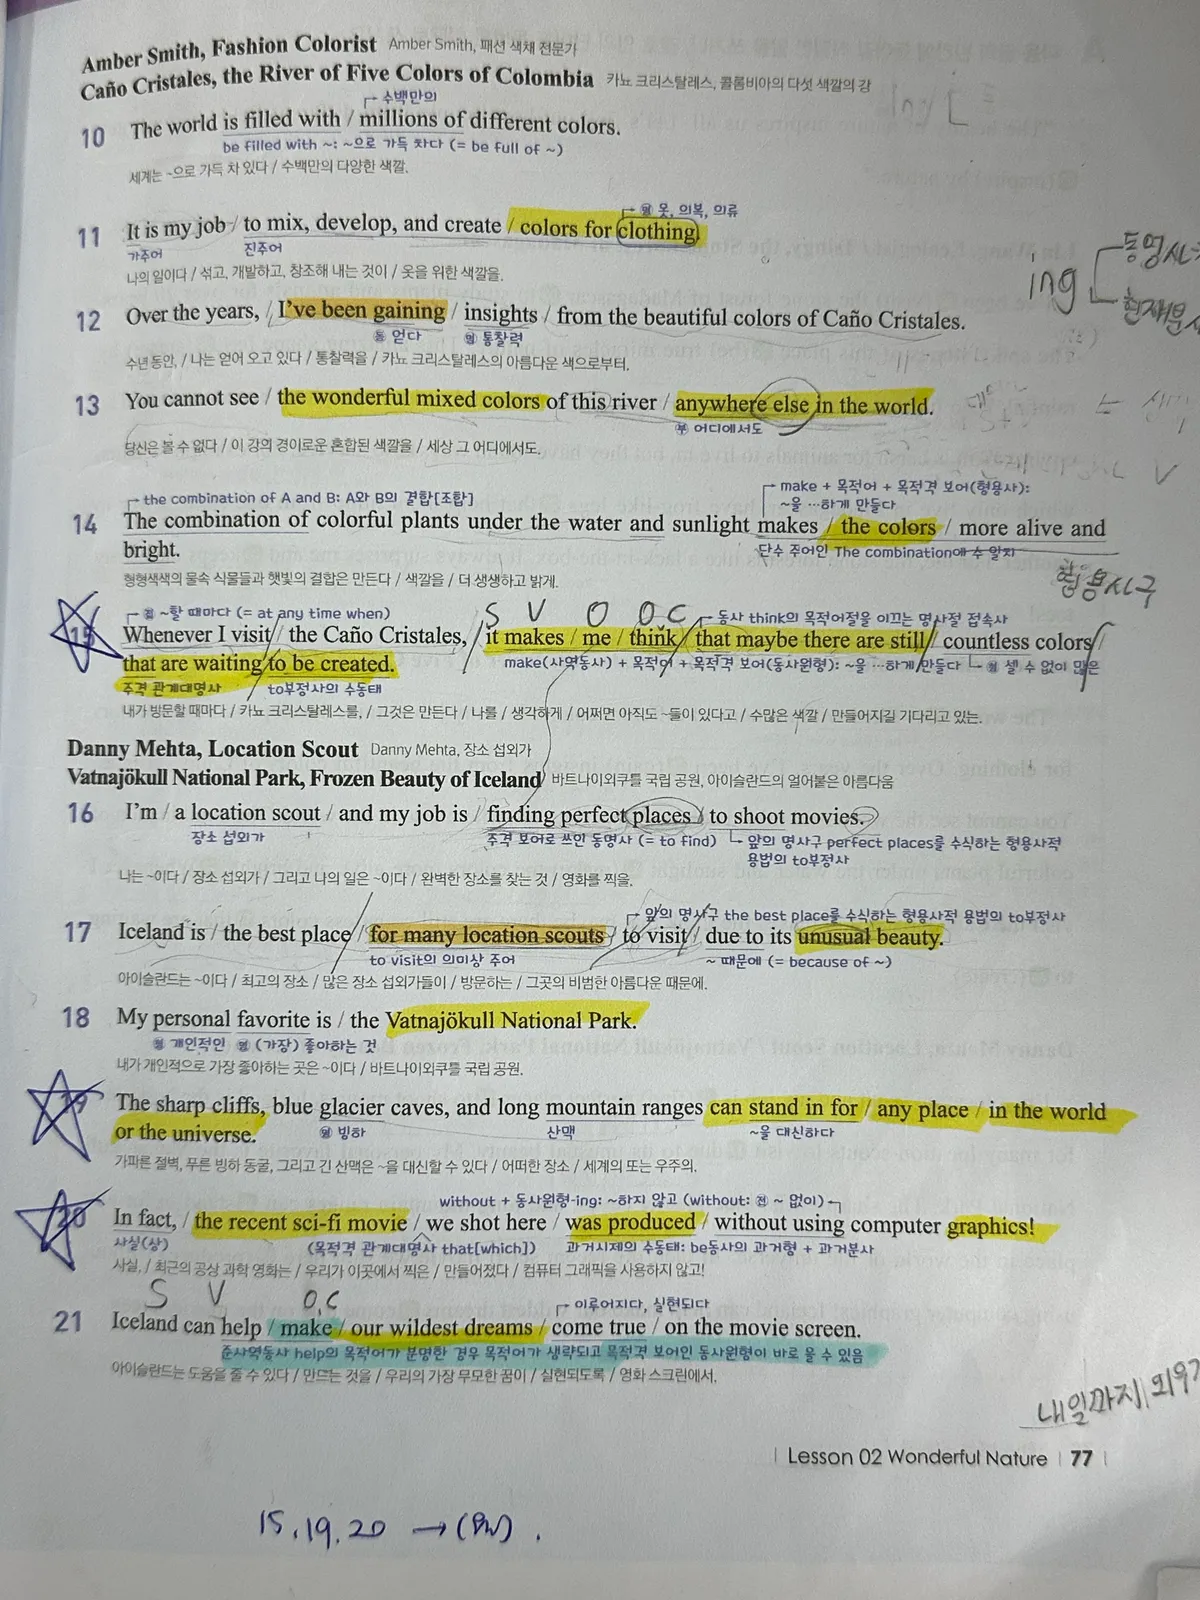 Amber Smith, Fashion Colorist Amber Smith, 패션 색채 전문가
Caño Cristales, the River of Five Colors of Colombia 카뇨 크리스탈레스, 콜롬비아의 다섯 색깔의 강
수백만의
10 The world is filled with / millions of different colors.
be filled with ~: ~으로 가득 차다 (= be full of ~)
세계는 ~으로 가득 차 있다 / 수백만의 다양한 색깔.
명 옷, 의복, 의류
11 It is my job / to mix, develop, and create / colors for clothing.
가주어 진주어
나의 일이다 / 섞고, 개발하고, 창조해 내는 것이 / 옷을 위한 색깔을.
ing
12 Over the years, / I've been gaining / insights / from the beautiful colors of Caño Cristales.
동 얻다 명 통찰력
수년 동안, / 나는 얻어 오고 있다 / 통찰력을 / 카뇨 크리스탈레스의 아름다운 색으로부터.
13 You cannot see / the wonderful mixed colors of this river / anywhere else in the world.
부 어디에서도
당신은 볼 수 없다 / 이 강의 경이로운 혼합된 색깔을 / 세상 그 어디에서도.
the combination of A and B: A와 B의 결합[조합] make + 목적어 + 목적격 보어(형용사):
~을 …하게 만들다
14 The combination of colorful plants under the water and sunlight makes / the colors / more alive and
bright. 단수 주어인 The combination에 수 일치
형형색색의 물속 식물들과 햇빛의 결합은 만든다 / 색깔을 / 더 생생하고 밝게.
형용사구
접 ~할 때마다 (= at any time when) S V O O.C 동사 think의 목적어절을 이끄는 명사절 접속사
15 Whenever I visit / the Caño Cristales, / it makes / me / think / that maybe there are still / countless colors /
that are waiting to be created. make(사역동사) + 목적어 + 목적격 보어(동사원형): ~을 …하게 만들다 형 셀 수 없이 많은
주격 관계대명사 to부정사의 수동태
내가 방문할 때마다 / 카뇨 크리스탈레스를, / 그것은 만든다 / 나를 / 생각하게 / 어쩌면 아직도 ~들이 있다고 / 수많은 색깔 / 만들어지길 기다리고 있는.
Danny Mehta, Location Scout Danny Mehta, 장소 섭외가
Vatnajökull National Park, Frozen Beauty of Iceland 바트나이외쿠틀 국립 공원, 아이슬란드의 얼어붙은 아름다움
16 I'm / a location scout / and my job is / finding perfect places / to shoot movies.
장소 섭외가 주격 보어로 쓰인 동명사 (= to find) 앞의 명사구 perfect places를 수식하는 형용사적
용법의 to부정사
나는 ~이다 / 장소 섭외가 / 그리고 나의 일은 ~이다 / 완벽한 장소를 찾는 것 / 영화를 찍을.
앞의 명사구 the best place를 수식하는 형용사적 용법의 to부정사
17 Iceland is / the best place / for many location scouts / to visit / due to its unusual beauty.
to visit의 의미상 주어 ~ 때문에 (= because of ~)
아이슬란드는 ~이다 / 최고의 장소 / 많은 장소 섭외가들이 / 방문하는 / 그곳의 비범한 아름다운 때문에.
18 My personal favorite is / the Vatnajökull National Park.
형 개인적인 명 (가장) 좋아하는 것
내가 개인적으로 가장 좋아하는 곳은 ~이다 / 바트나이외쿠틀 국립 공원.
19 The sharp cliffs, blue glacier caves, and long mountain ranges can stand in for / any place / in the world
or the universe. 명 빙하 산맥 ~을 대신하다
가파른 절벽, 푸른 빙하 동굴, 그리고 긴 산맥은 ~을 대신할 수 있다 / 어떠한 장소 / 세계의 또는 우주의.
without + 동사원형-ing: ~하지 않고 (without: 전 ~ 없이)
20 In fact, / the recent sci-fi movie / we shot here / was produced / without using computer graphics!
사실(상) (목적격 관계대명사 that[which]) 과거시제의 수동태: be동사의 과거형 + 과거분사
사실, / 최근의 공상 과학 영화는 / 우리가 이곳에서 찍은 / 만들어졌다 / 컴퓨터 그래픽을 사용하지 않고!
S V O.C 이루어지다, 실현되다
21 Iceland can help / make / our wildest dreams / come true / on the movie screen.
준사역동사 help의 목적어가 분명한 경우 목적어가 생략되고 목적격 보어인 동사원형이 바로 올 수 있음
아이슬란드는 도움을 줄 수 있다 / 만드는 것을 / 우리의 가장 무모한 꿈이 / 실현되도록 / 영화 스크린에서.
내일까지
Lesson 02 Wonderful Nature 77
15, 19, 20 →